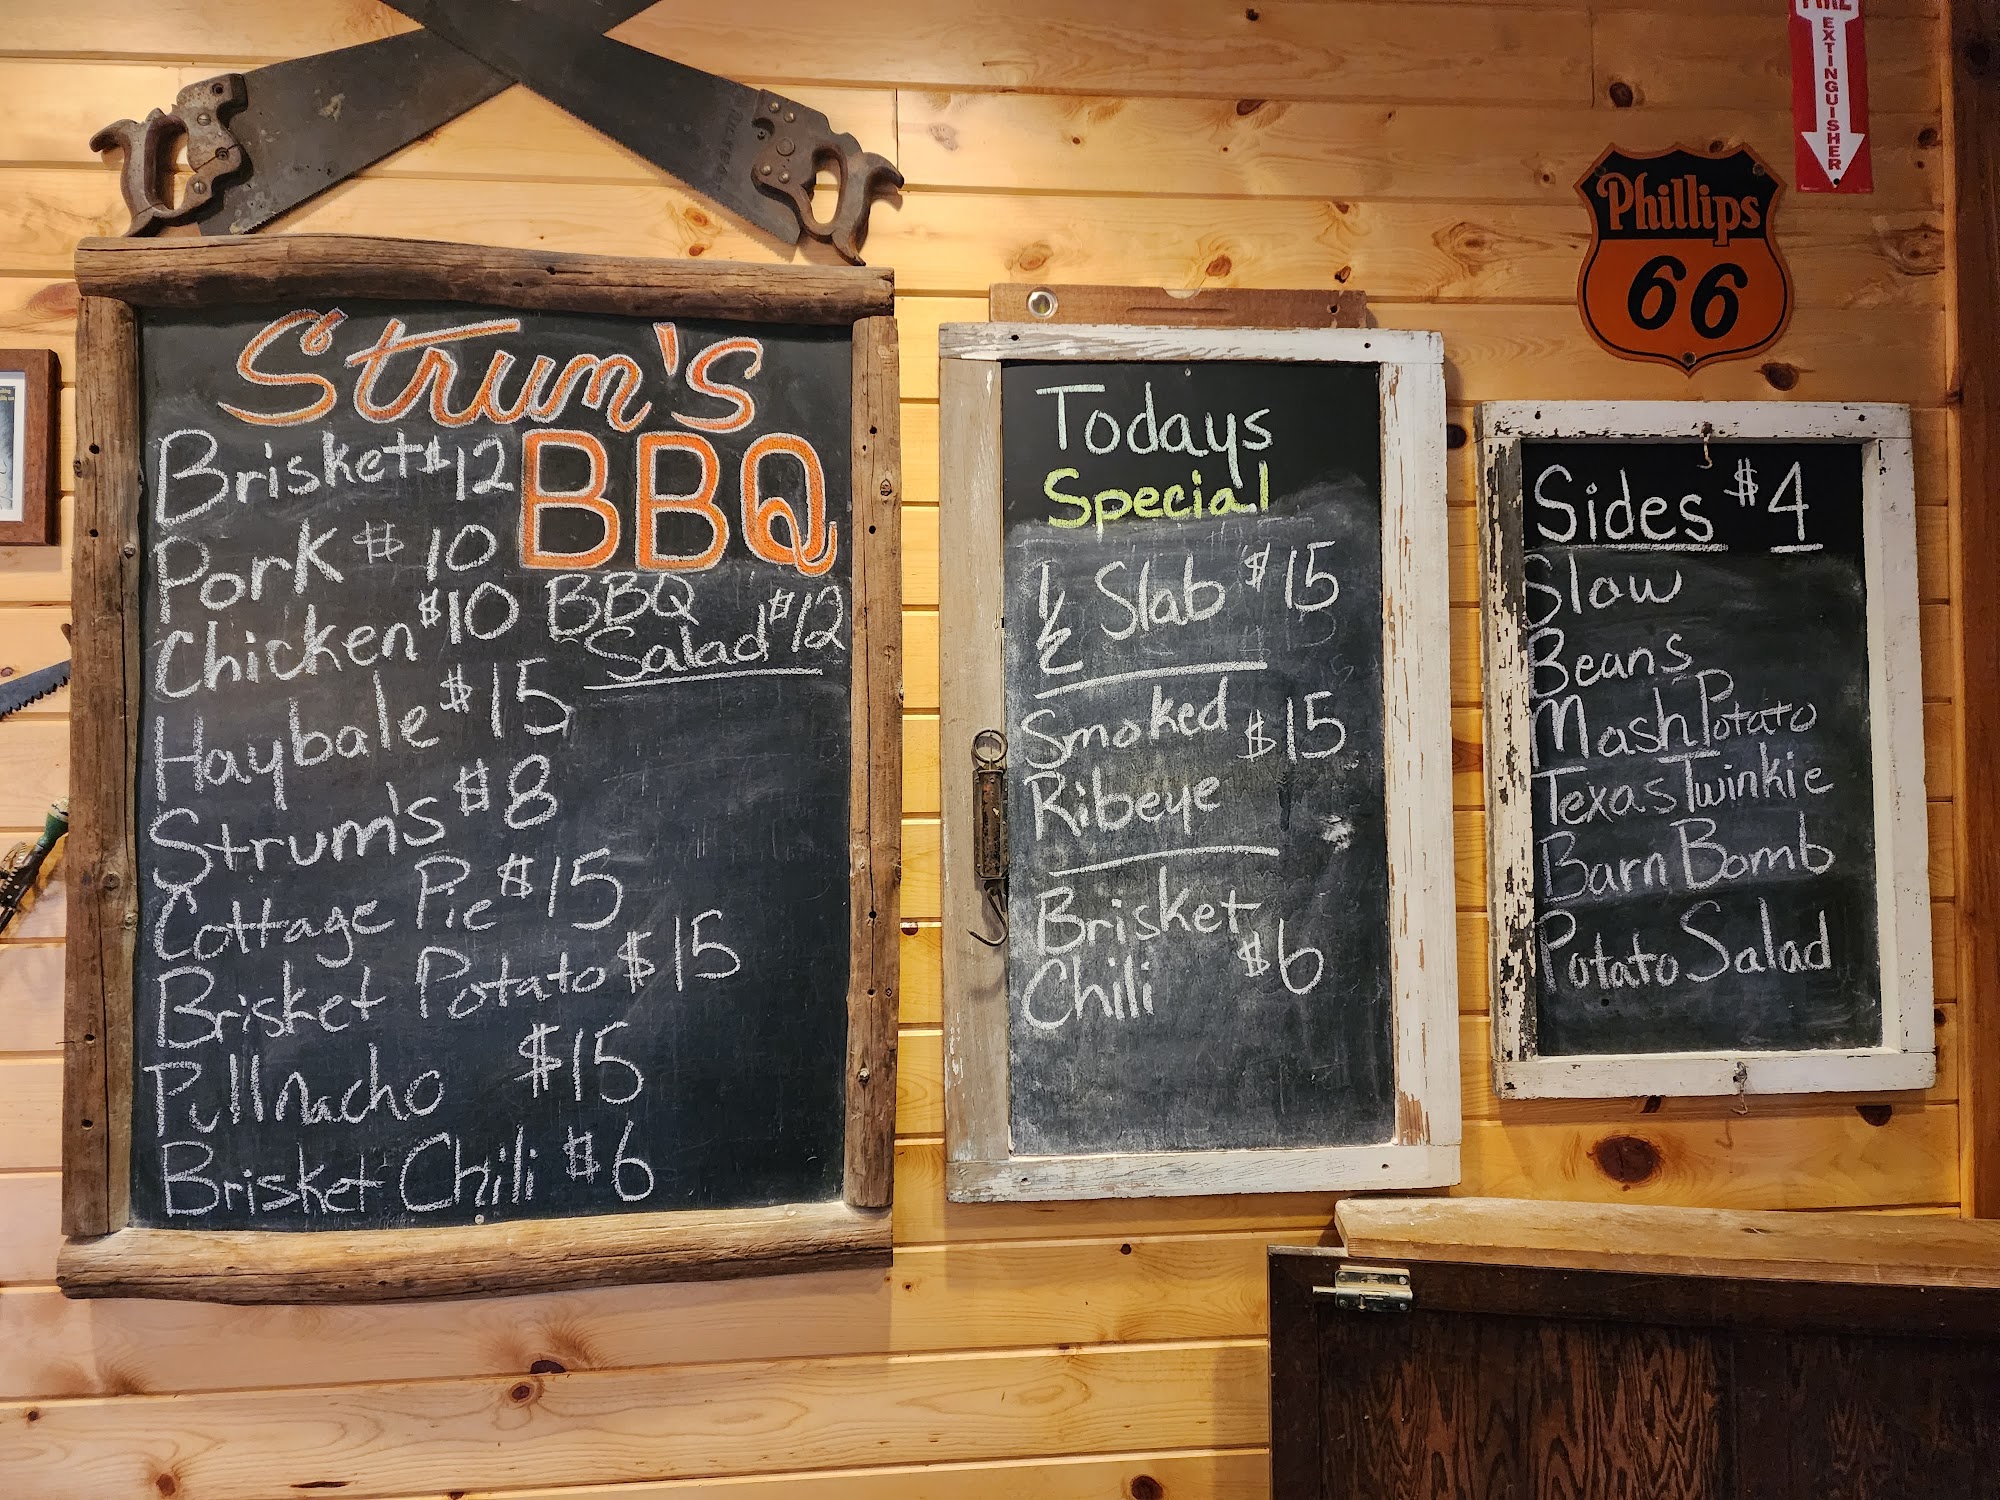 Strum's
BBQ
Brisket $12
Pork $10
Chicken $10
BBQ
Salad $12
Haybale $15
Strum's $8
Cottage Pie $15
Brisket Potato $15
Pullnacho $15
Brisket Chili $6
Todays
Special
1/2 Slab $15
Smoked
Ribeye $15
Brisket
Chili $6
Sides $4
Slaw
Beans
Mash Potato
Texas Twinkie
Barn Bomb
Potato Salad
Phillips
66
FIRE
EXTINGUISHER